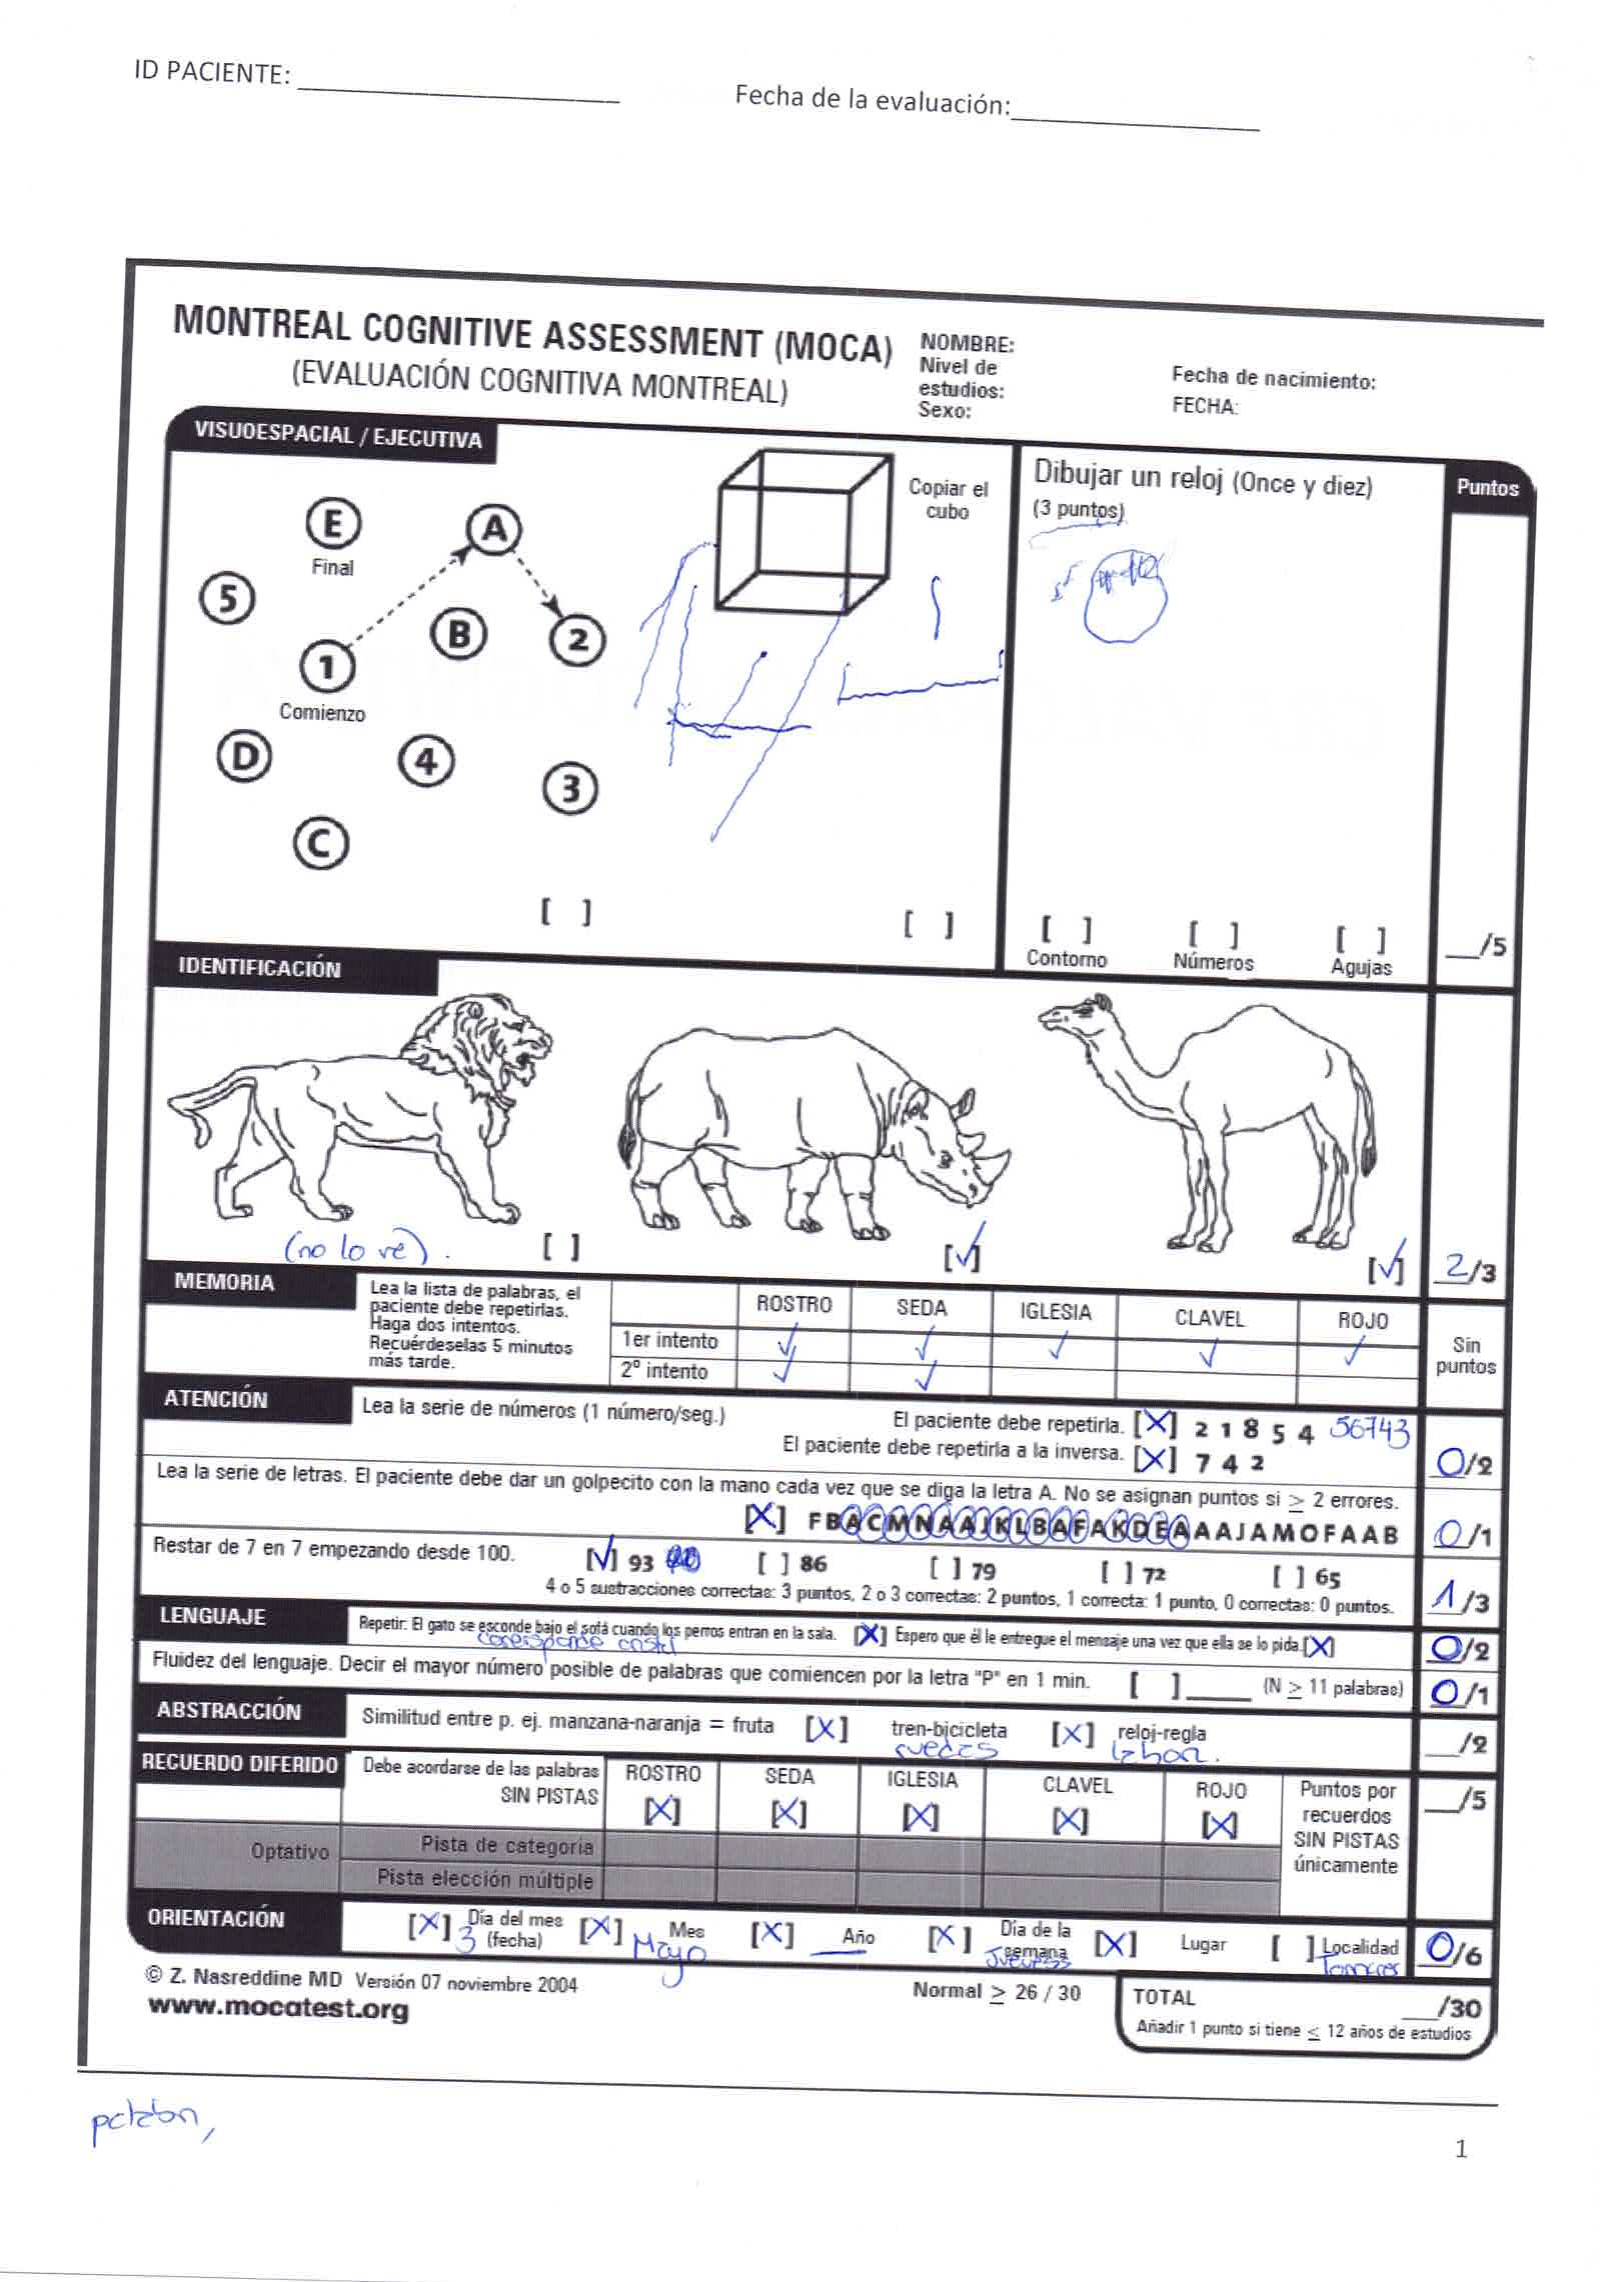 ID PACIENTE: ____________________ Fecha de la evaluación:________________
MONTREAL COGNITIVE ASSESSMENT (MOCA)
(EVALUACIÓN COGNITIVA MONTREAL)
NOMBRE:
Nivel de
estudios:
Sexo:
Fecha de nacimiento:
FECHA:
VISUOESPACIAL / EJECUTIVA
E
Final
A
5
B
2
1
Comienzo
D
4
3
C
[ ]
Copiar el
cubo
[ ]
Dibujar un reloj (Once y diez)
(3 puntos)
[ ] [ ] [ ]
Contorno Números Agujas
Puntos
__/5
IDENTIFICACIÓN
(no lo ve). [ ] [✓] [✓] 2/3
MEMORIA
Lea la lista de palabras, el
paciente debe repetirlas.
Haga dos intentos.
Recuérdeselas 5 minutos
más tarde.
ROSTRO SEDA IGLESIA CLAVEL ROJO
1er intento ✓ ✓ ✓ ✓ ✓
2º intento ✓ ✓
Sin
puntos
ATENCIÓN
Lea la serie de números (1 número/seg.) El paciente debe repetirla. [X] 2 1 8 5 4 56743
El paciente debe repetirla a la inversa. [X] 7 4 2 0/2
Lea la serie de letras. El paciente debe dar un golpecito con la mano cada vez que se diga la letra A. No se asignan puntos si ≥ 2 errores.
[X] F B A C M N A A J K L B A F A K D E A A A J A M O F A A B 0/1
Restar de 7 en 7 empezando desde 100. [✓] 93 [ ] 86 [ ] 79 [ ] 72 [ ] 65
4 o 5 sustracciones correctas: 3 puntos, 2 o 3 correctas: 2 puntos, 1 correcta: 1 punto, 0 correctas: 0 puntos. 1/3
LENGUAJE
Repetir: El gato se esconde bajo el sofá cuando los perros entran en la sala. [X] Espero que él le entregue el mensaje una vez que ella se lo pida. [X] 0/2
Fluidez del lenguaje. Decir el mayor número posible de palabras que comiencen por la letra "P" en 1 min. [ ]_____ (N ≥ 11 palabras) 0/1
ABSTRACCIÓN
Similitud entre p. ej. manzana-naranja = fruta [X] tren-bicicleta [X] reloj-regla __/2
ruedas
RECUERDO DIFERIDO
Debe acordarse de las palabras
SIN PISTAS
ROSTRO SEDA IGLESIA CLAVEL ROJO
[X] [X] [X] [X] [X]
Puntos por
recuerdos
SIN PISTAS
únicamente
__/5
Optativo
Pista de categoria
Pista elección múltiple
ORIENTACIÓN
[X] Día del mes (fecha) 3 [X] Mes Mayo [X] Año [X] Día de la semana Jueves [X] Lugar [ ] Localidad 0/6
© Z. Nasreddine MD Versión 07 noviembre 2004
www.mocatest.org
Normal ≥ 26 / 30
TOTAL __/30
Añadir 1 punto si tiene ≤ 12 años de estudios
1